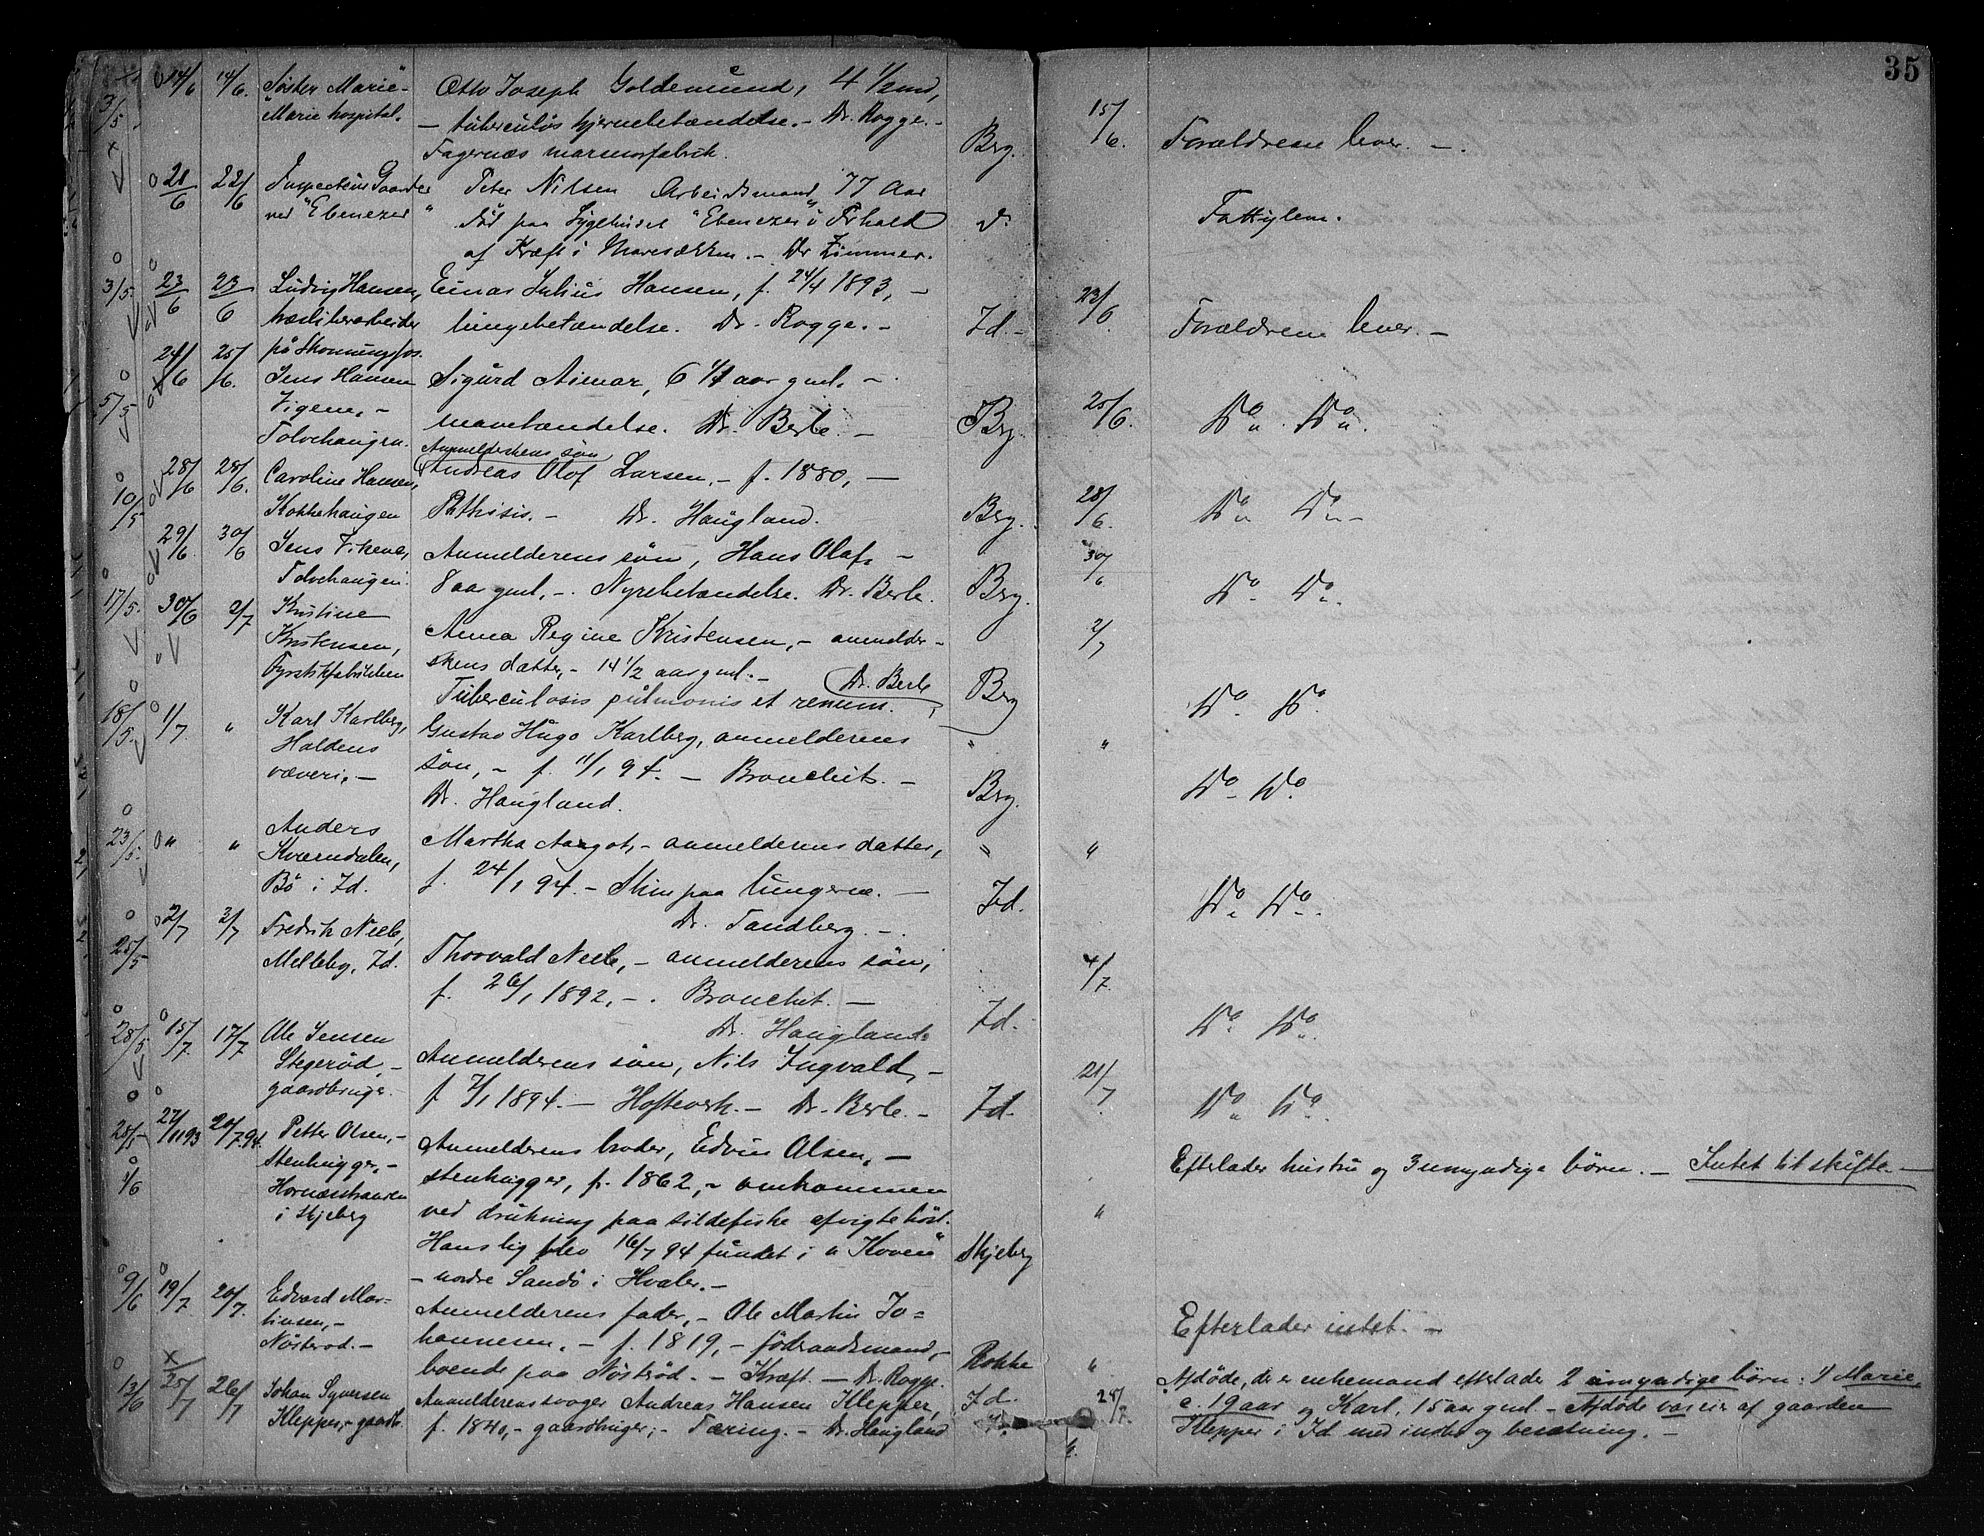 35
3/5 14/6 14/6. Søster Marie Otto Joseph Goldemund, 4 1/2 md,
Marie hospital. – tuberculøs hjernebetændelse. – Dr. Rogge. –
Fagernæs marmorfabrik. Berg. 15/6. Forældrene lever. –
21/6 22/6 Inspecteur Gaarder Peter Nilsen Arbeidsmand, 77 Aar
ved "Ebenezer" Død paa Sygehuset "Ebenezer" i Frhald Fattiglem.
af Kræft i Mavesækken. – Dr Zimmer.
3/5. 23/6 23/6 Ludvig Hansen, Einar Julius Hansen, f. 24/4 1893, –
træsliberarbeider lungebetændelse. Dr. Rogge. – Id. – 23/6 Forældrene lever. –
på Skonningsfos.
5/5 24/6 25/6. Jens Hansen Sigurd Aimar, 6 1/4 aar gml. –
Vigene, – mavebetændelse. Dr. Berle. – Berg. 25/6 Do. Do.
Tolvehaugen.
Anmelderskens søn
10/5 28/6 28/6. Caroline Hansen, Andreas Olof Larsen, – f. 1880, –
Kokkehaugen Pthisis. – Dr. Haugland. Berg. 28/6. Do Do –
29/6 30/6 Jens Vikene, Anmelderens søn, Hans Olaf, –
Tolvehaugen. 8 aar gml, –. Nyrebetændelse. Dr. Berle. Berg. 30/6 Do. Do.
17/5. 30/6 2/7 Kristine
Kristensen, Anna Regine Kristensen, – anmelder- 2/7
Fyrstikfabrikken skens datter, – 14 1/2 aar gml. – Dr. Berle
Tuberculosis pulmonis et renum. Berg Do. Do.
18/5. 1/7 " Karl Karlberg, Gustav Hugo Karlberg, anmelderens " "
Haldens søn, – f. 11/1 94. – Bronchit. –
væveri, – Dr. Haugland. Berg. Do. Do.
23/5. " " Anders
Kværndalen, Martha Aagot, – anmelderens datter, " "
Bø i Id. f. 24/1 94. – Slim paa lungerne. – Id. Do. Do.
Dr. Tandberg. –.
25/5 2/7 3/7 Fredrik Neeb,
Melleby, Id. Thorvald Neeb, – anmelderens søn, 4/7.
f. 26/1 1892, –. Bronchit. –
Dr. Haugland. Id. Do. Do.
28/5 15/7. 17/7 Ole Jensen
Stegerød, – Anmelderens søn, Nils Ingvald, –
gaardbruger. f 7/1 1894. – Hofteverk. – Dr. Berle. – Id. 21/7 Do Do.
28/5 27/11 93 20/7. 94. Petter Olsen, – Anmelderens broder, Edvin Olsen, –
Stenhugger, – stenhugger, f. 1862, – omkommen Efterlader hustru og 3 umyndige børn. – Intet til skifte. –
1/6 Hornæsstranden ved drukning paa sildefiske afvigte høst. "
i Skjeberg Hans lig blev 16/7 94 fundet i "Koven" Skjeberg
– nordre Sandø i Hvaler. –
9/6 19/7 20/7. Edvard Mar- Anmelderens fader, – Ole Martin Jo=
tinsen, – hannesen, – f. 1819, – föderaadsmand, – Efterlader intet. –
Nøsterød. – boende paa Nøsterød. – Kræft. – Dr. Rogge. Rokke "
13/6 25/7 26/7 Johan Syversen Anmelderens svoger Andreas Hansen Klepper, Id. 28/7. Afdøde, der er enkemand efterlader 2 umyndige børn: 1) Marie,
Klepper, – gaardb. f. 1840, – gaardbruger; – Tæring. – Dr. Haugland c. 19 aar og Karl, 15 aar gml – Afdøde var eier af gaarden
Klepper i Id med indbo og besætning. –